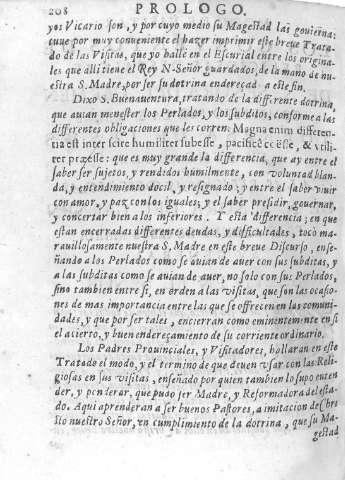 208 PROLOGO.
yos Vicario son, y por cuyo medio su Magestad las gouierna:
tuue por muy conueniente el hazer imprimir este breue Trata-
do de las Visitas, que yo hallè en el Escurial entre los origina-
les que alli tiene el Rey N. Señor guardados, de la mano de nu-
estra S. Madre, por ser su dotrina endereçada a este fin.
Dixo S. Buenauentura, tratando de la differente dotrina,
que auian menester los Perlados, y los subditos, conforme a las
differentes obligaciones que les corren: Magna enim differen-
tia est inter scire humiliter subesse, pacificè coësse, & vtili-
ter præesse: que es muy grande la differencia, que ay entre el
saber ser sujetos, y rendidos humilmente, con voluntad blan-
da, y entendimiento docil, y resignado; y entre el saber viuir
con amor, y paz con los iguales; y el saber presidir, gouernar,
y concertar bien a los inferiores. Y esta differencia; en que
estan encerradas differentes deudas, y difficultades, tocò ma-
rauillosamente nuestra S. Madre en este breue Discurso, ense-
ñando a los Perlados como se auian de auer con sus subditas, y
a las subditas como se auian de auer, no solo con sus Perlados,
sino tambien entre si, en orden a las visitas, que son las ocasio-
nes de mas importancia entre las que se offrecen en las comuni-
dades, y que por ser tales, encierran como eminentemente en si
el acierto, y buen endereçamiento de su corriente ordinario.
Los Padres Prouinciales, y Visitadores, hallaran en este
Tratado el modo, y el termino de que deuen vsar con las Reli-
giosas en sus visitas, enseñado por quien tambien lo supo enten
der, y ponderar, que pudo ser Madre, y Reformadora del esta-
do. Aqui aprenderan a ser buenos Pastores, a imitacion de Chri
sto nuestro Señor, en cumplimiento de la dotrina, que su Ma-
gestad